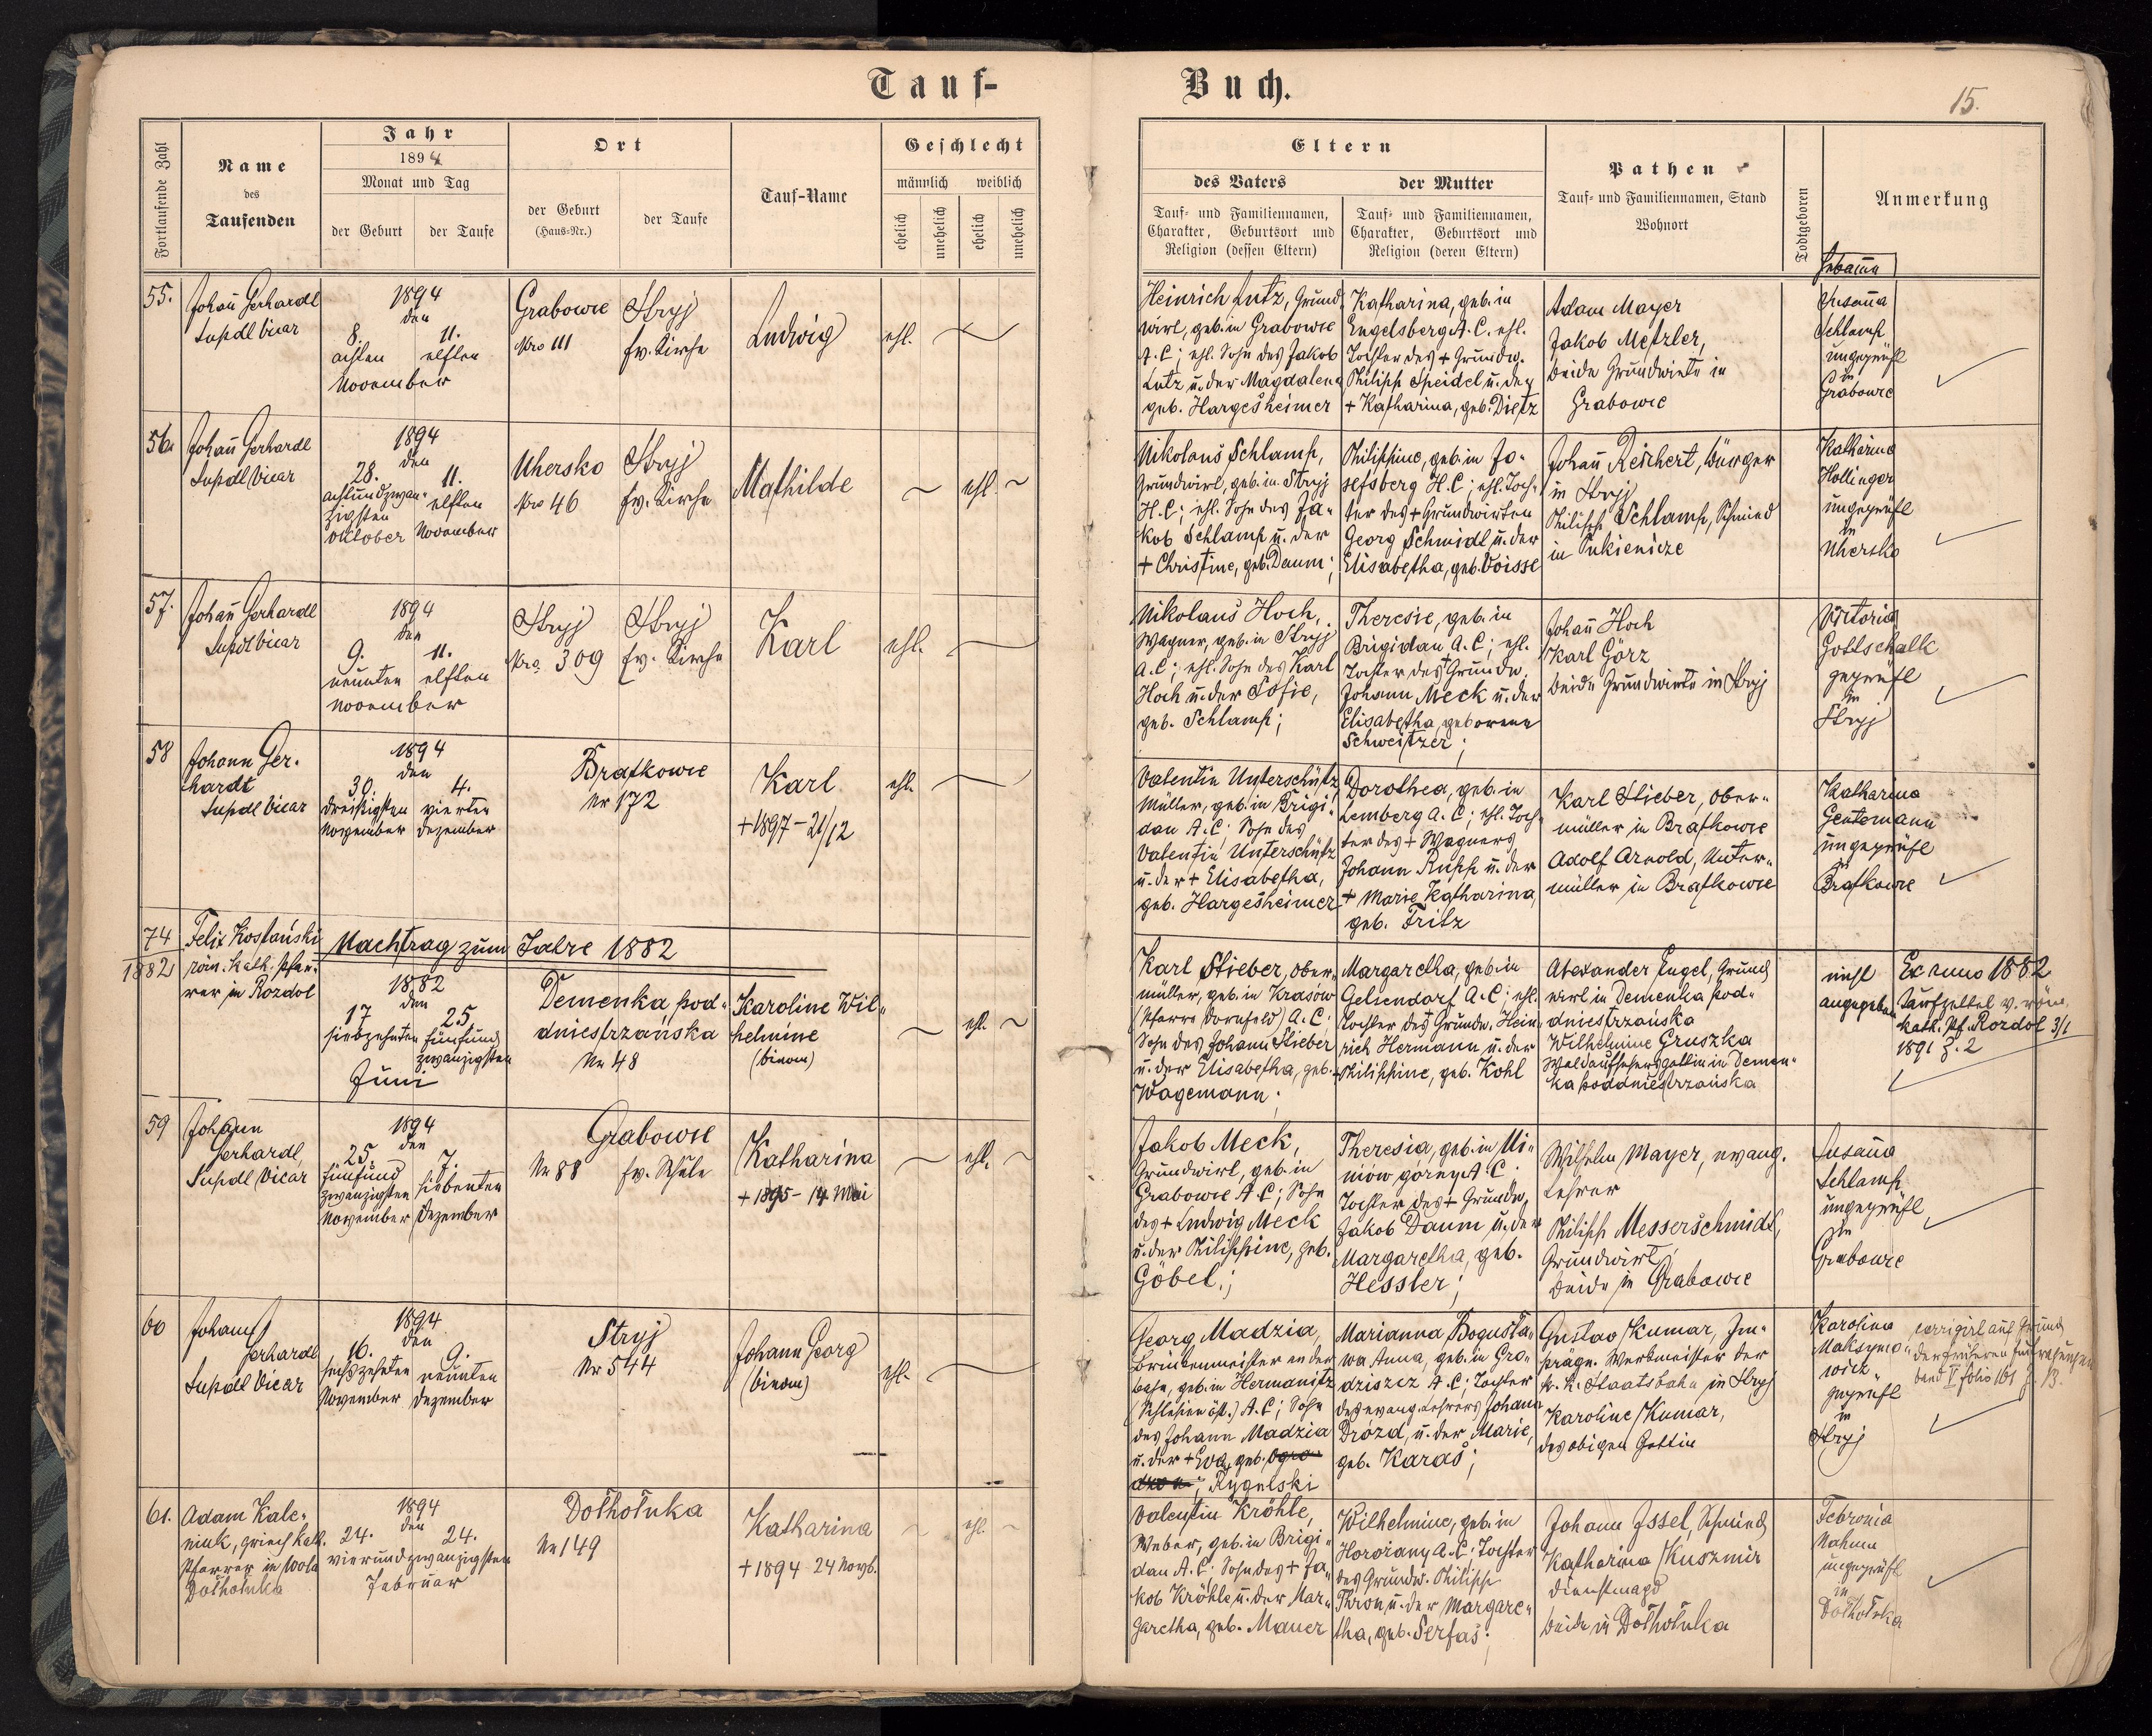 Tauf-
Buch.
15.
Fortlaufende Zahl
Name
des
Taufenden
Jahr
1894
Monat und Tag
der Geburt
der Taufe
Ort
der Geburt
(Haus-Nr.)
der Taufe
Tauf-Name
Geschlecht
männlich
weiblich
ehelich
unehelich
ehelich
unehelich
Eltern
des Vaters
Tauf- und Familiennamen,
Charakter, Geburtsort und
Religion (dessen Eltern)
der Mutter
Tauf- und Familiennamen,
Charakter, Geburtsort und
Religion (deren Eltern)
Pathen
Tauf- und Familiennamen, Stand
Wohnort
Todtgeboren
Anmerkung
Hebam̄e
55.
Johan̄ Gerhardt
Supdl Vicar
1894
den
8.
11.
achten
elften
November
Grabowce
Nro 111
Stryj
ev. Kirche
Ludwig
ehl.
Heinrich Lutz, Grund
wirt, geb. in Grabowce
A.C; ehl. Sohn des Jakob
Lutz u. der Magdalena
geb. Hargesheimer
Katharina, geb. in
Engelsberg A.C. ehl.
Tochter des + Grundw.
Philipp Speidel u. der
+ Katharina, geb. Dietz
Adam Mayer
Jakob Metzler,
beide Grundwirte in
Grabowce
Susan̄a
Schlamp
ungeprüft
in
Grabowce
56.
Johan̄ Gerhardt
Supdl Vicar
1894
den
28.
11.
achtundzwan-
zigsten
elften
Oktober
November
Uhersko
Nro 46
Stryj
ev. Kirche
Mathilde
ehl.
Nikolaus Schlamp,
Grundwirt, geb. in Stryj
H.C; ehl. Sohn des Ja-
kob Schlamp u. der
+ Christine, geb. Daum;
Philippine, geb. in Jo-
sefsberg H.C; ehl. Toch-
ter des + Grundwirten
Georg Schmidt u. der
Elisabetha, geb. Voisse
Johan̄ Reichert, Bürger
in Stryj
Philipp Schlamp, Schmied
in Sukienicze
Katharina
Hollinger
ungeprüft
in
Uhersko
57.
Johan̄ Gerhardt
Supdl Vicar
1894
den
9.
11.
neunten
elften
November
Stryj
Nro. 309
Stryj
ev. Kirche
Karl
ehl.
Nikolaus Hoch,
Wagner, geb. in Stryj
A.C; ehl. Sohn des Karl
Hoch u. der Sofie,
geb. Schlamp;
Theresie, geb. in
Brigidau A.C; ehl.
Tochter des + Grundw.
Johann Meck u. der
Elisabetha, geborene
Schweitzer;
Johan̄ Hoch
Karl Görz
beide Grundwirte in Stryj
Victoria
Gottschalk
geprüft
in
Stryj
58
Johann Ger-
hardt
Supdl Vicar
1894
den
30.
4.
dreißigsten
vierten
November
Dezember
Bratkowce
Nr 172
Karl
+ 1897 - 21/12
ehl.
Valentin Unterschütz
Müller, geb. in Brigi-
dau A.C; Sohn des
Valentin Unterschütz
u. der + Elisabetha,
geb. Hargesheimer
Dorothea, geb. in
Lemberg A.C; ehl. Toch-
ter des + Wagners
Johann Rupp u. der
+ Marie Katharina,
geb. Fritz
Karl Stieber, Ober-
müller in Bratkowce
Adolf Arnold, Unter-
müller in Bratkowce
Katharina
Gentemann
ungeprüft
in
Bratkowce
74
1882
Felix Kostański
röm. kath. Pfar-
rer in Rozdol
Nachtrag zum Jahre 1882
1882
den
17
25.
siebzehnten
fünfund
zwanzigsten
Juni
Demenka pod-
dniestrzańska
Nr 48
Karoline Wil-
helmine
(binom)
ehl.
Karl Stieber, Ober-
müller, geb. in Krasów
(Pfarre Dornfeld) A.C;
Sohn des Johann Stieber
u. der Elisabetha, geb.
Wagemann;
Margaretha, geb. in
Gelsendorf A.C; ehl.
Tochter des + Grundw. Hein-
rich Hermann u. der
Philippine, geb. Kohl
Alexander Engel, Grund
wirt in Demenka pod-
dniestrzańska
Wilhelmine Gruszka
Waldaufsehersgattin in Demen-
ka poddniestrzańska
nicht
angegeben
Ex anno 1882
Taufzettel v. röm.
kath. Pf. Rozdol 3/1
1891 Z. 2
59
Johann
Gerhardt,
Supdl Vicar
1894
den
25.
7.
fünfund
zwanzigsten
siebenten
November
Dezember
Grabowce
Nr 88
ev. Schule
Katharina
+ 1895 - 14 Mai
ehl.
Jakob Meck,
Grundwirt, geb. in
Grabowce A.C; Sohn
des + Ludwig Meck
u. der Philippine, geb.
Göbel;
Theresia, geb. in Ui-
niów gorny A.C
Tochter des + Grundw.
Jakob Daum u. der
Margaretha, geb.
Hessler;
Wilhelm Mayer, evang.
Lehrer
Philipp Messerschmidt,
Grundwirt,
beide in Grabowce
Susan̄a
Schlamp
ungeprüft
in
Grabowce
60
Johann
Gerhardt
Supdl Vicar
1894
den
16.
9.
sechszehnten
neunten
November
Dezember
Stryj
Nr 544
Johann Georg
(binom)
ehl.
Georg Madzia,
Brückenmeister an der
Bahn, geb. in Hermanitz
(Schlesien öst.) A.C; Sohn
des Johann Madzia
u. der + Eva, geb.
Rygulski
Marianna Bogusła-
wa Anna, geb. in Gro-
dziszcz A.C; Tochter
des evang. Lehrers Johann
Drózd, u. der Marie,
geb. Karaś;
Gustav Kumar, Im-
prägn. Werkmeister der
k. k. Staatsbahn in Stryj
Karoline Kumar,
des obigen Gattin
Karolina
Maksymo-
wicz
geprüft
in
Stryj
corrigirt auf Grund
der früheren Eintragungen
band V folio 161 Z. 13.
61.
Adam Kale-
niuk, griech kath.
Pfarrer in Wola
Dołhołuka
1894
den
24.
24.
vierundzwanzigsten
Februar
Dołhołuka
Nr 149
Katharina
+ 1894 24 Novb.
ehl.
Valentin Kröhle,
Weber, geb. in Brigi-
dau A.C: Sohn des + Ja-
kob Kröhle u. der Mar-
garetha, geb. Mauer
Wilhelmine, geb. in
Horożany A.C: Tochter
des Grundw. Philipp
Thron u. der Margare-
tha, geb. Serfas;
Johann Issel, Schmied
Katharina Kuszmir
Dienstmagd
beide in Dołhołuka
Febronia
Nahum
ungeprüft
in
Dołhołuka